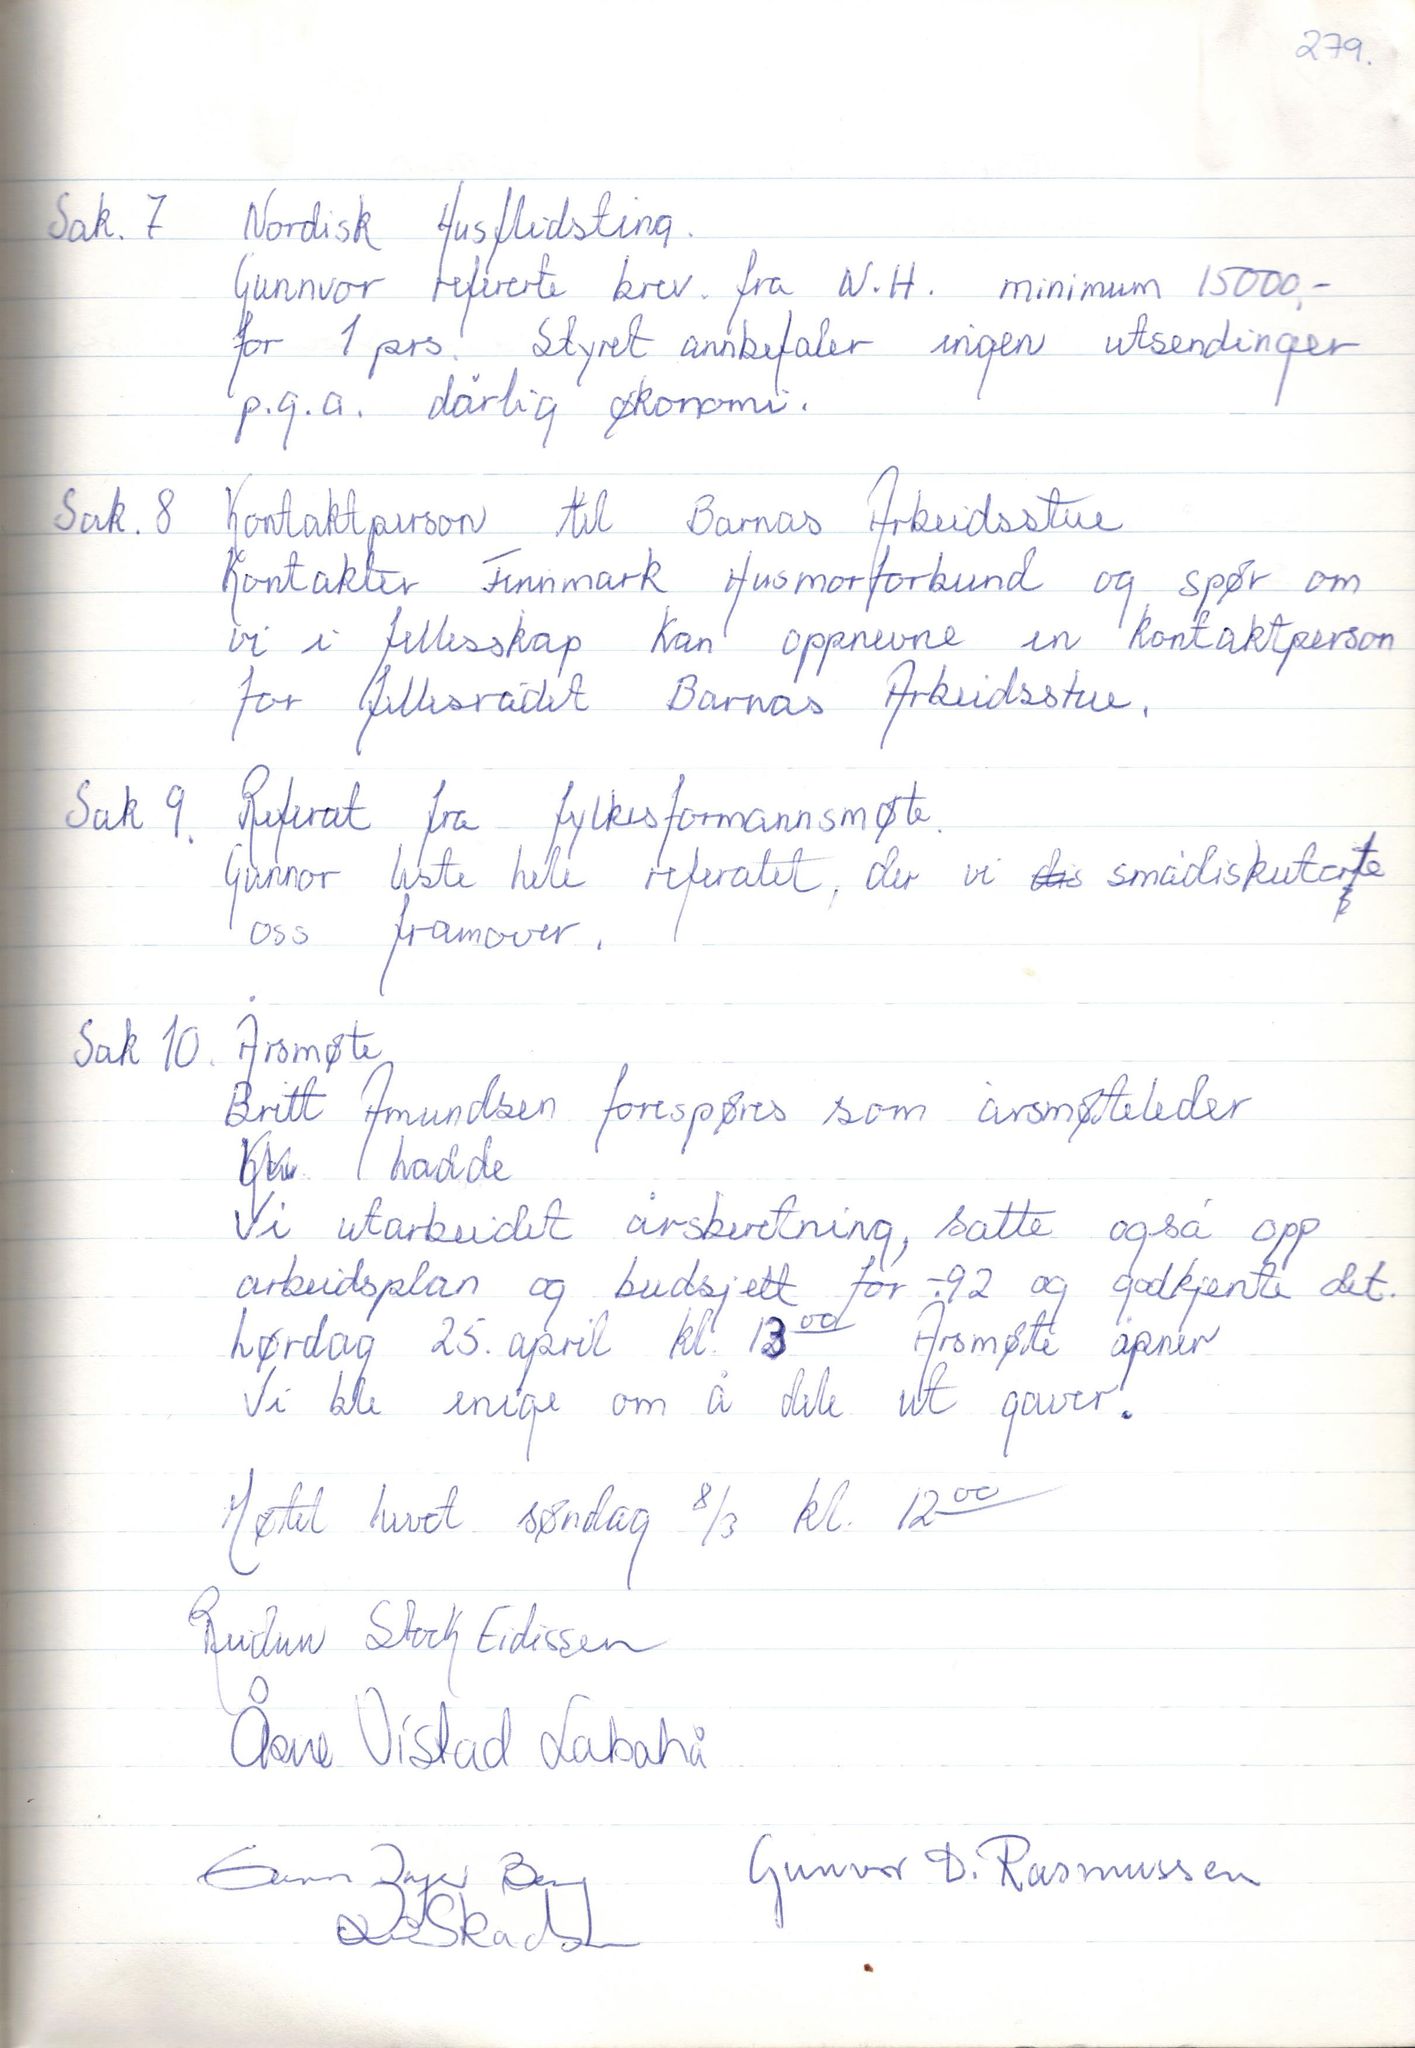 279.
Sak. 7 Nordisk Husflidsting.
Gunnvor refererte brev. fra N.H. minimum 15000,-
for 1 prs. Styret annbefaler ingen utsendinger
p.g.a. dårlig økonomi.
Sak. 8 Kontaktperson til Barnas Arbeidsstue
Kontakter Finnmark Husmorforbund og spør om
vi i fellesskap kan oppnevne en kontaktperson
for fellesrådet Barnas Arbeidsstue.
Sak 9. Referat fra fylkesformannsmøte.
Gunnor leste hele referatet, der vi dis smådiskuterte
oss framover.
Sak 10. Årsmøte
Britt Amundsen forespøres som årsmøteleder
hadde
Vi utarbeidet årsberetning, satte også opp
arbeidsplan og budsjett for -92 og godkjente det.
Lørdag 25. april kl. 13 00 Årsmøte åpner
Vi ble enige om å dele ut gaver.
Møtet hevet søndag 8/3 kl. 12 00
Reidun Stock Eidissen
Åsne Vistad Labahå
Berg Gunvor D. Rasmussen